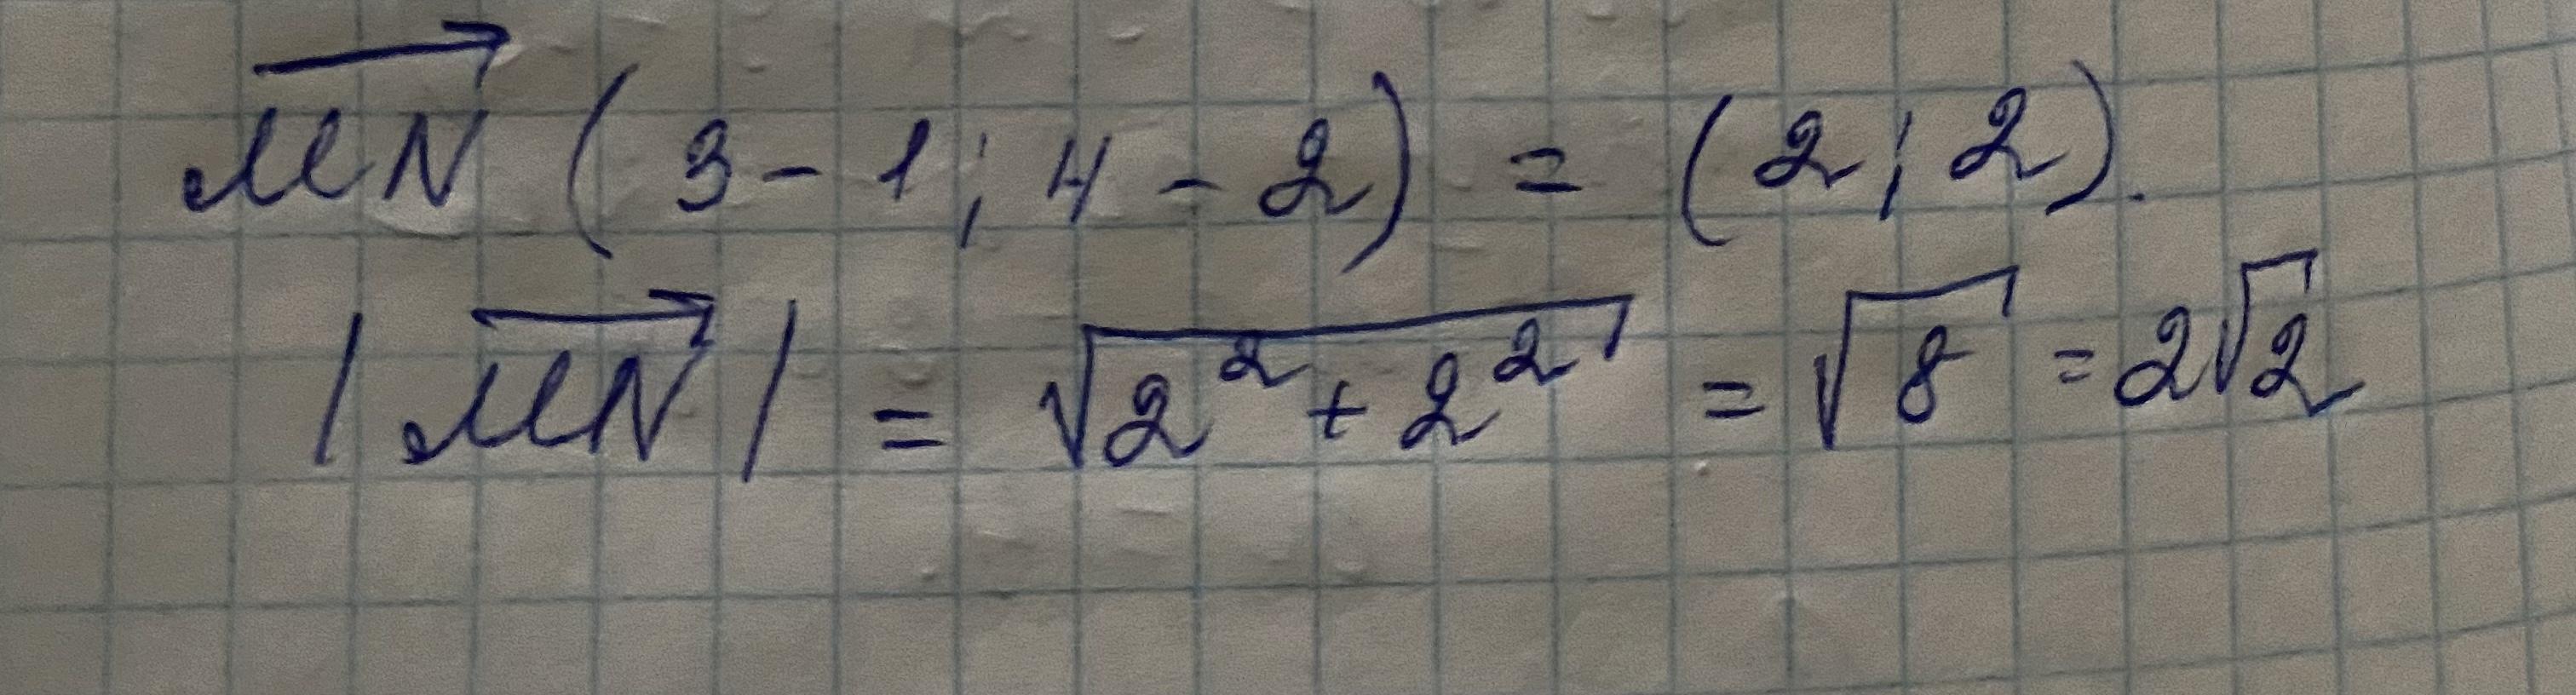 $\overrightarrow{MN}$ (3 - 1; 4 - 2) = (2; 2).
|$\overrightarrow{MN}$| = $\sqrt{2^2 + 2^2}$ = $\sqrt{8}$ = 2$\sqrt{2}$